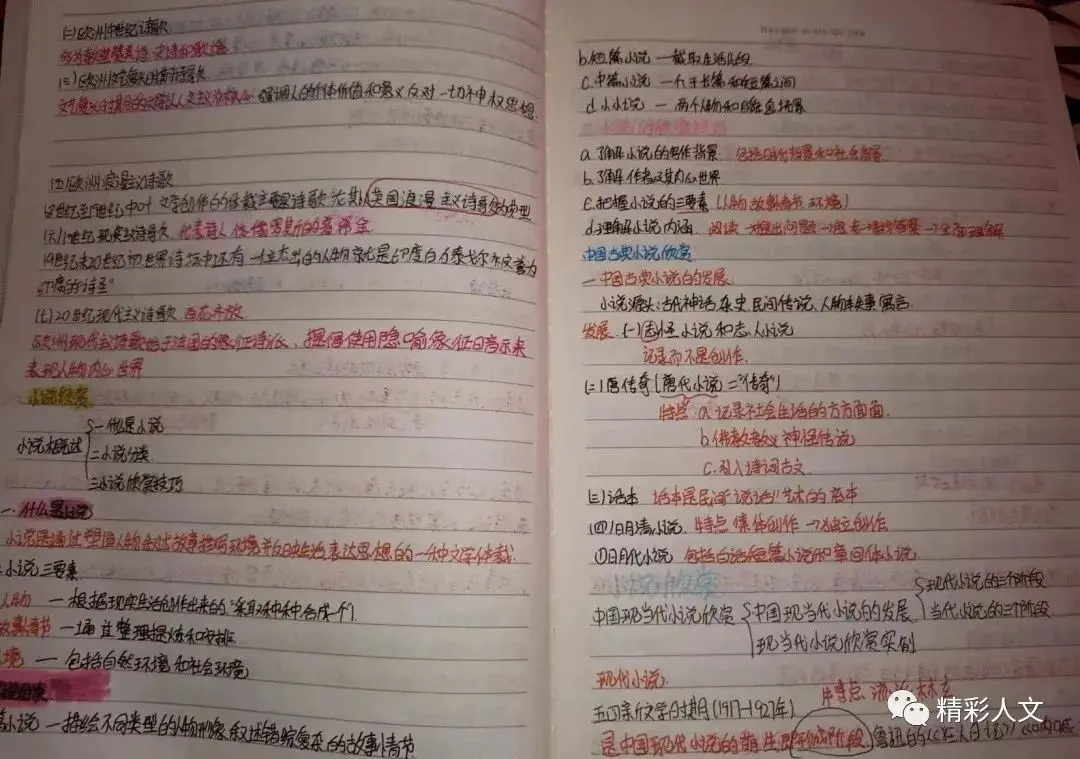 (二)欧洲中世纪诗歌
多为教堂赞美诗 史诗和歌谣
(三)欧洲文艺复兴时期诗歌
文艺复兴时期的文学以人文主义为核心 强调人的个体价值和意义 反对一切神权思想.
(五)欧洲浪漫主义诗歌
文学创作的体裁主要是诗歌 尤其以英国浪漫主义诗歌为典型
(六)19世纪现实主义诗歌 代表诗人
19世纪末20世纪初世界诗坛中还有一位杰出的人物就是印度的泰戈尔 被誉为
印度的"诗圣"
(七)20世纪现代主义诗歌 百花齐放
欧洲现代主义诗歌始于法国的象征诗派、提倡使用隐喻象征的音示来
表现人物内心世界
小说欣赏
一什么是小说
小说概述 二小说分类
三小说欣赏技巧
一.什么是小说
小说是通过塑造人物 叙述故事 描写环境 并反映生活表达思想的一种文学体裁.
小说三要素
人物 一根据现实生活创作出来的"采取种种合成一个"
故事情节 一通过整理提炼和安排
环境 一包括自然环境和社会环境
小说 一描绘不同类型的人物形象 叙述错综复杂的故事情节
b.短篇小说 一截取生活片段
c.中篇小说 一介于长篇和短篇之间
d.小小说 一两个人物和场景
a.了解小说的写作背景 包括时代背景和社会背景
b.了解作者及其内心世界
c.把握小说的三要素 (人物 故事情节 环境)
d.理解小说内涵 阅读→提出问题→思考→找到答案→全面理解
中国古典小说欣赏
一中国古典小说的发展.
小说源头:古代神话 杂史 民间传说、人物轶事 寓言
发展 (一)志怪小说和志人小说
记录而不是创作.
(二)唐传奇(唐代小说="传奇")
特点:a.记录社会生活的方方面面.
b.佛教教义 神怪传说
c.引入诗词古文
(三)话本 话本是民间"说话"艺术的底本
(四)明清小说. 特点 集体创作→独立创作
①明代小说 包括白话短篇小说和章回体小说.
现代小说的三个阶段
中国现当代小说欣赏 中国现当代小说的发展 当代小说的三个阶段
现当代小说欣赏实例
现代小说
五四新文学时期(1917-1927年)
是中国现代小说的萌生即形成阶段 鲁迅的《狂人日记》《呐喊
精彩人文